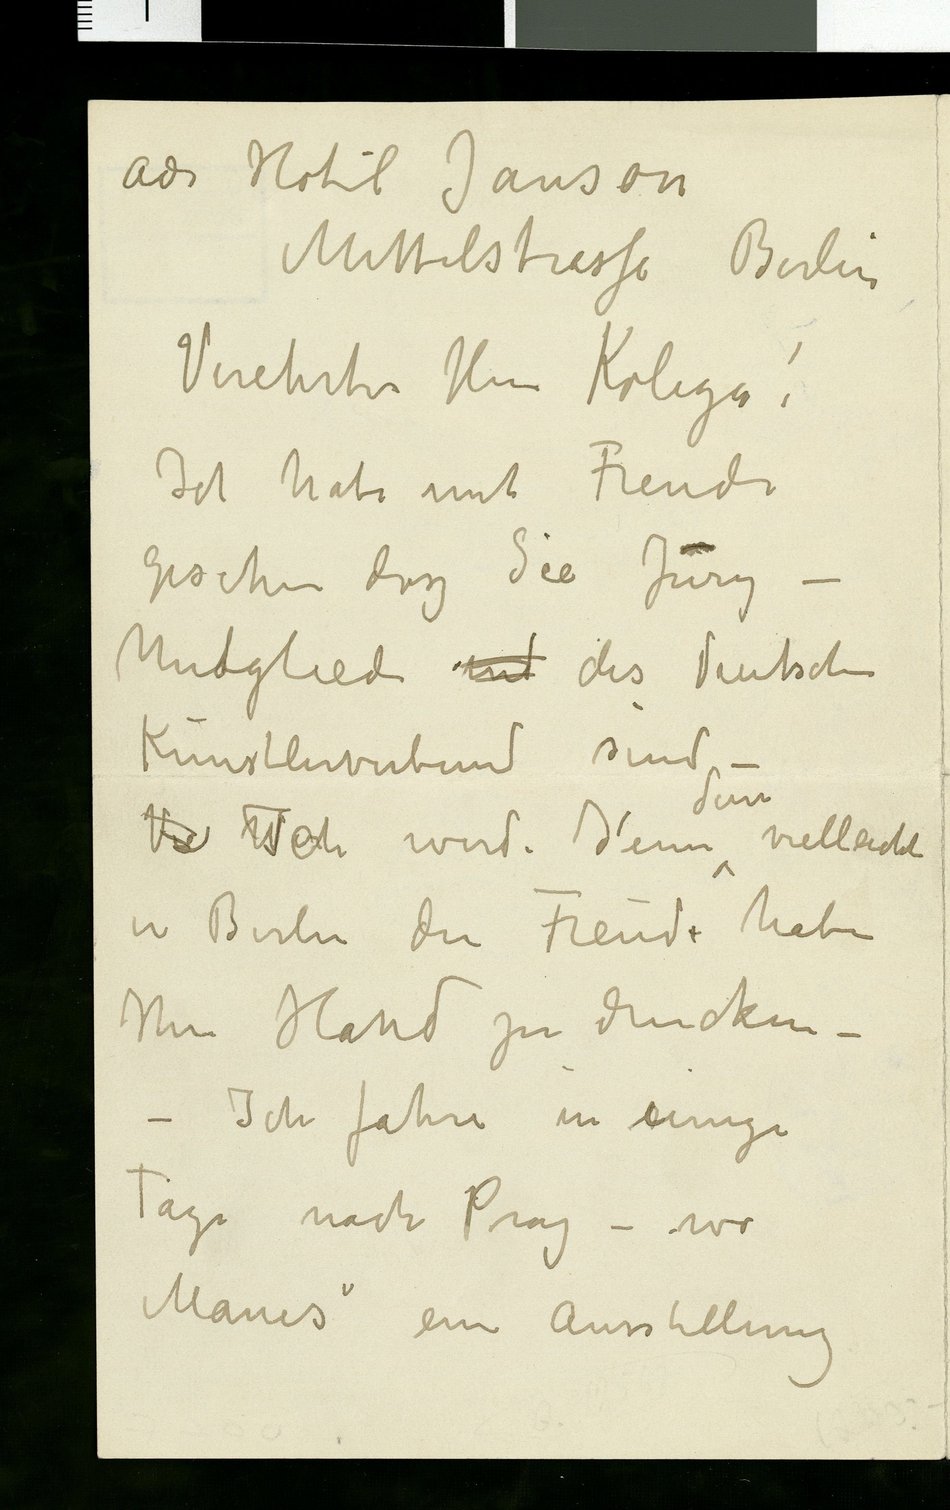 adr Hotel Janson
Mittelstrasse Berlin
Verehrter Herr Kolega!
Ich habe mit Freude
gesehen dasz Sie Jury –
Mitglied des Deutschen
Künstlerverbund sind –
Ich werde denn dann vielleicht
in Berlin die Freude haben
Ihre Hand zu drucken –
– Ich fahre in einige
Tage nach Prag – wo
Manes" eine Ausstellung